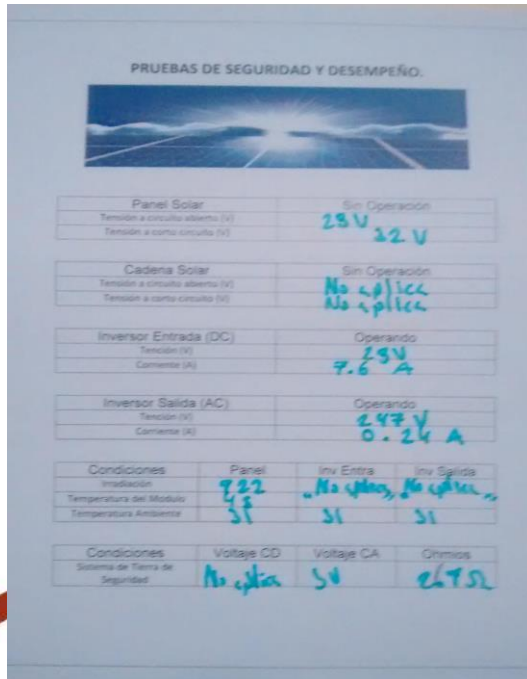 PRUEBAS DE SEGURIDAD Y DESEMPEÑO.
Panel Solar Sin Operación
Tensión a circuito abierto (V) 23 V
Tensión a corto circuito (V) 22 V
Cadena Solar Sin Operación
Tensión a circuito abierto (V) No aplica
Tensión a corto circuito (V) No aplica
Inversor Entrada (DC) Operando
Tención (V) 23V
Corriente (A) 7.6 A
Inversor Salida (AC) Operando
Tención (V) 247 V
Corriente (A) 0.24 A
Condiciones Panel Inv Entra Inv Salida
Irradiación 922 No aplica, No aplica
Temperatura del Modulo
Temperatura Ambiente 31 31 31
Condiciones Voltaje CD Voltaje CA Ohmios
Sistema de Tierra de
Seguridad No aplica Ω